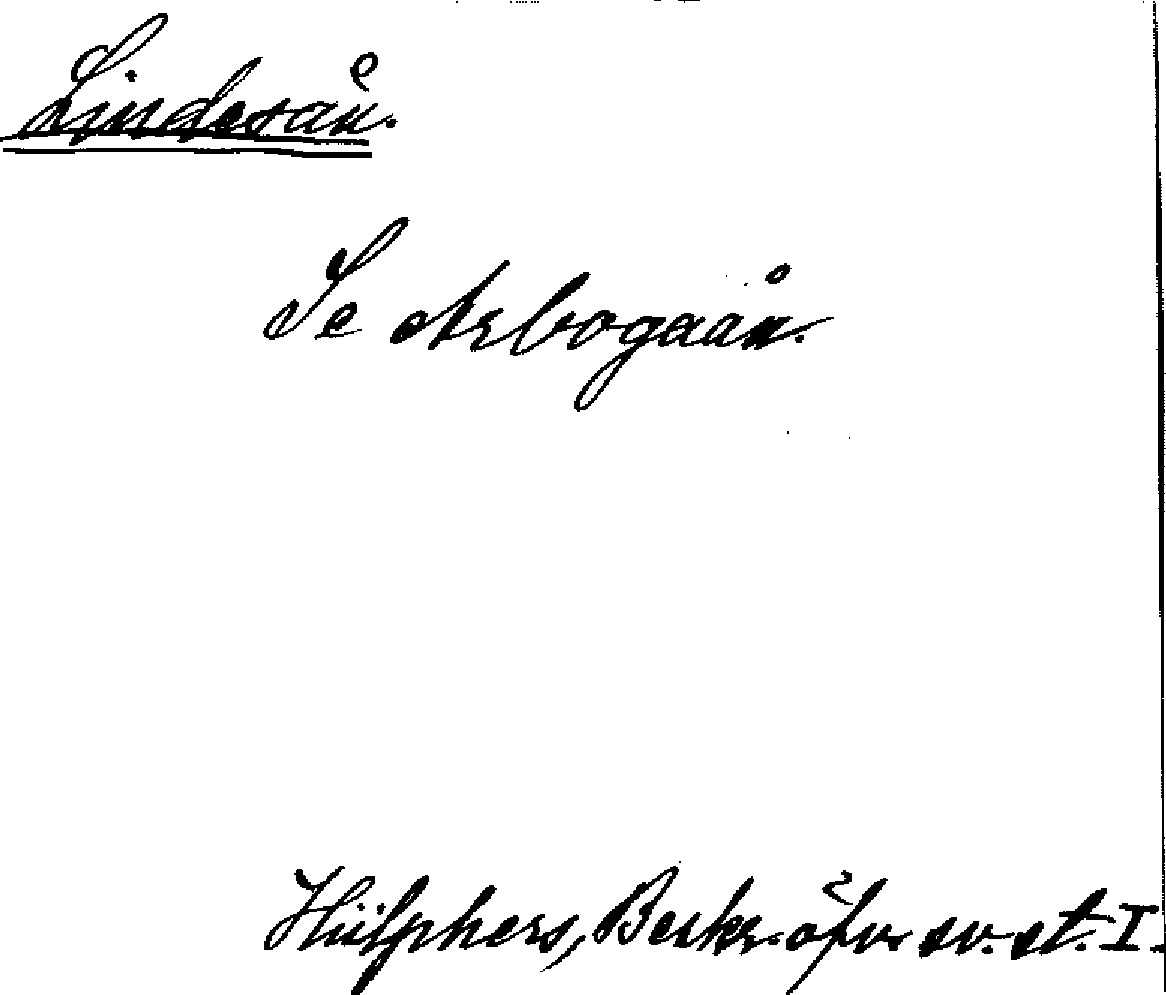 Lindesån.
Se Arbogaån.
Hülphers, Beskr. öfv. sv. st. I.